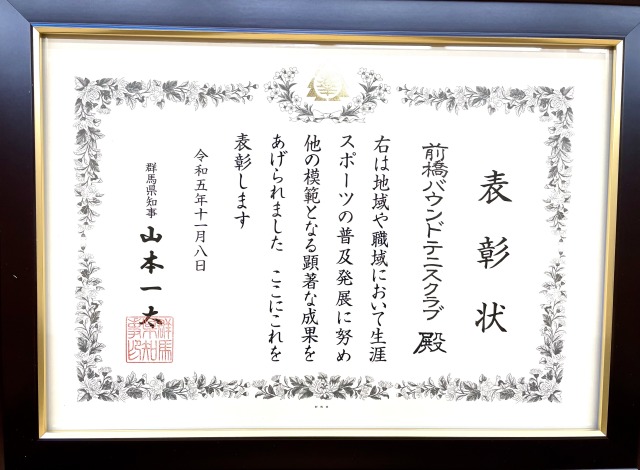 表彰状
前橋バウンドテニスクラブ 殿
右は地域や職域において生涯
スポーツの普及発展に努め
他の模範となる顕著な成果を
あげられました ここにこれを
表彰します
令和五年十一月八日
群馬県知事 山本一太
群馬県知事之印